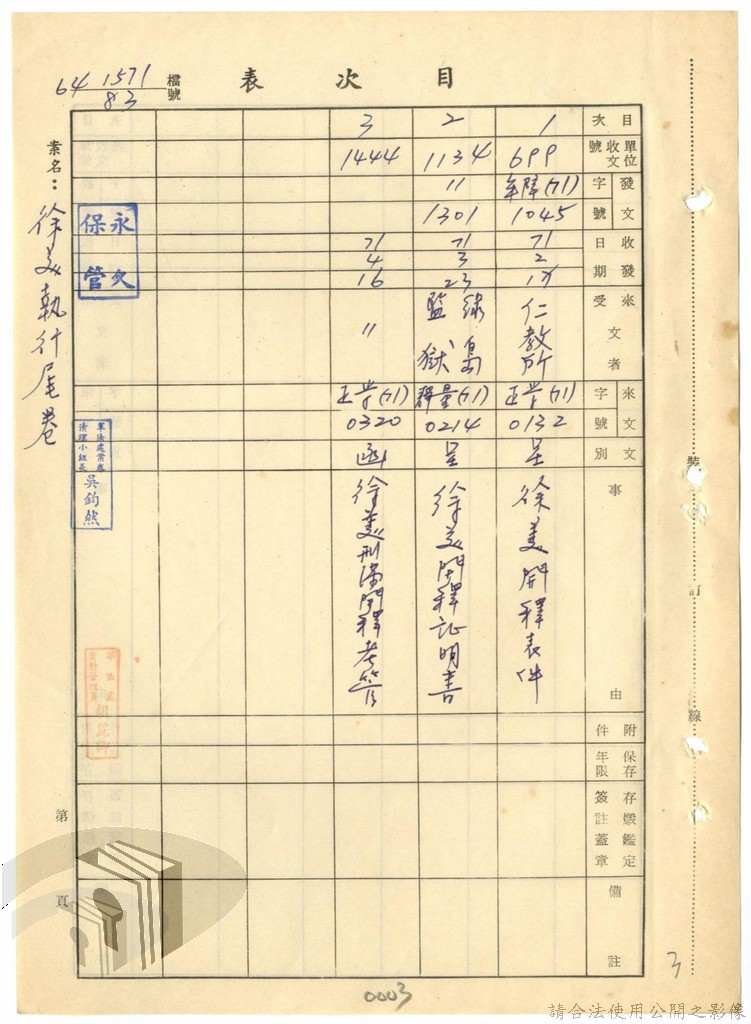 目次表
檔號
64 1571
83
案名：徐美執行尾卷
永久保管
軍法處案卷
清理小組長
吳鈞然
目次 1 2 3
單位收文號 699 1134 1444
發文字號 (71) 1045 〃 1301
收發日期 71 2 71 3 23 71 4 16
來文受文者 仁教所 綠島監獄 〃
來文字號 (71) 0132 (71) 0214 (71) 0320
文別 呈 呈 函
事由
徐美開釋表件
徐美開釋証明書
徐美刑滿開釋考管
附件
保存年限
存燬鑑定簽註蓋章
備註
第 頁
裝
訂
線
3
0003
請合法使用公開之影像